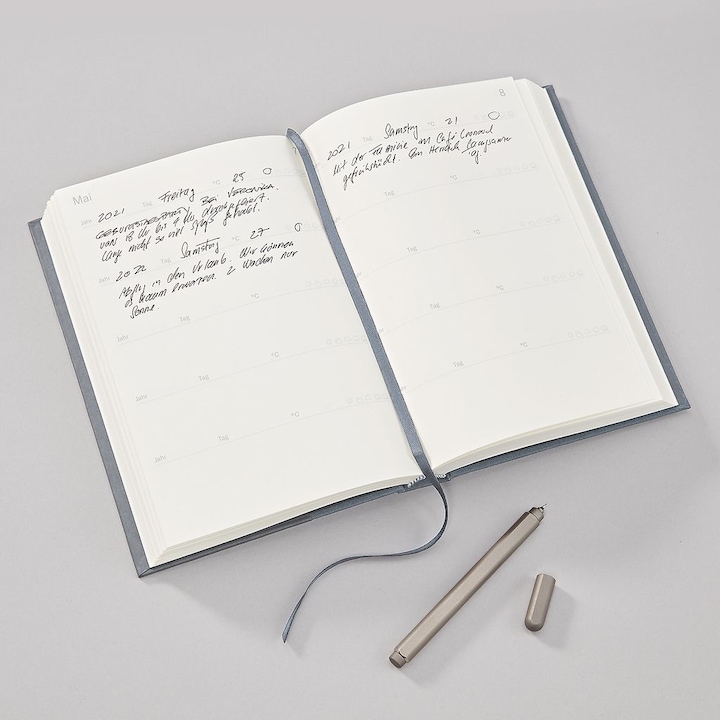 Mai
Jahr 2021 Tag Freitag °C 25
GEBURTSTAGSPARTY BEI VERONIKA.
von 18 Uhr bis 4 Uhr durchgefeiert.
Lang nicht so viel Spaß gehabt.
2022 Samstag 27
Abflug in den Urlaub. Wir können
es kaum erwarten. 2 Wochen nur
Sonne.
Jahr Tag °C
Jahr Tag °C
Jahr Tag °C
8
2021 Tag Samstag °C 21
Mit der Familie im Café Leonard
gefrühstückt. Ein
°C
°C
°C
°C